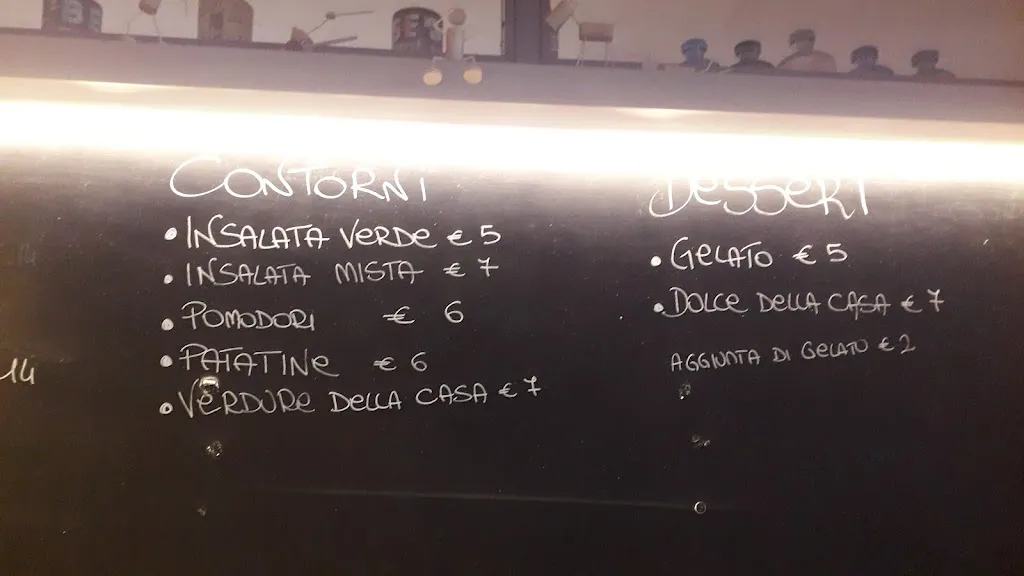 CONTORNI
• INSALATA VERDE € 5
• INSALATA MISTA € 7
• POMODORI € 6
• PATATINE € 6
• VERDURE DELLA CASA € 7
14
DESSERT
• GELATO € 5
• DOLCE DELLA CASA € 7
AGGIUNTA DI GELATO € 2